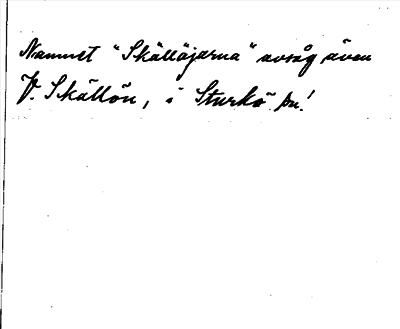 Namnet "Skällöjarna" avsåg även
V. Skällön, i Sturkö sn!